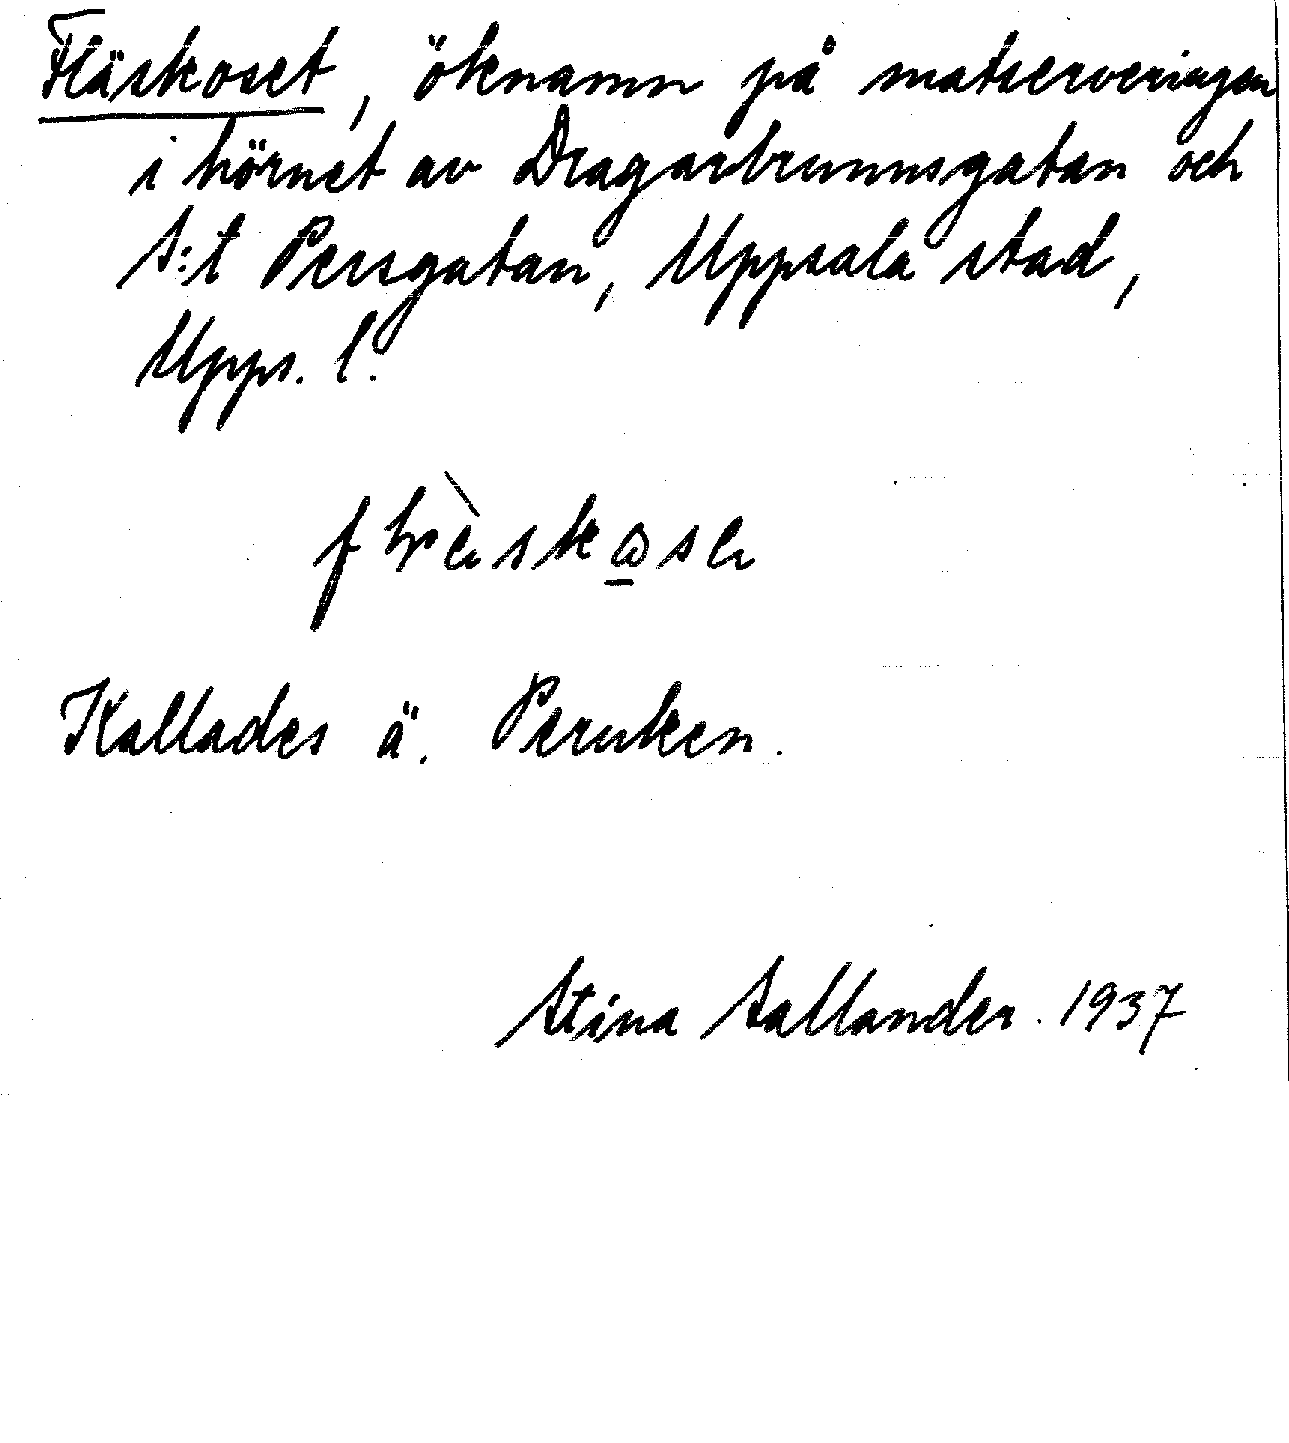 Fläskoset, öknamn på matserveringen
i hörnet av Dragarbrunnsgatan och
S:t Persgatan, Uppsala stad,
Upps. l.
Kallades ä. Peruken.
Stina Sallander. 1937